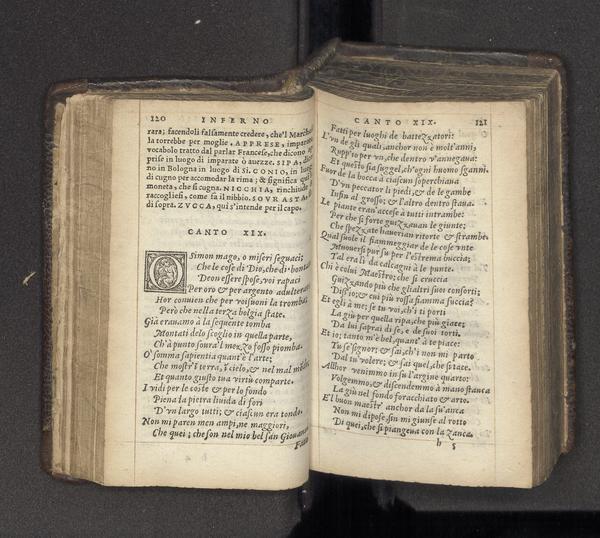 120 INFERNO
rara; facendoli falsamente credere, che'l March
la torrebbe per moglie. APPRESE, imparate
vocabolo tratto dal parlar Francese, che dicono
prise in luogo di imparate ò auezze. SIPA, dice
no in Bologna in luogo di Si. CONIO, in luog
di cugno per accomodar la rima; & significa qui
moneta, che si cugna. NICCHIA, rinchiude
raccogliesi, come fa il nibbio. SOVRASTA,
di sopra. ZVCCA, qui s'intende per il capo.
CANTO XIX.
O Simon mago, o miseri seguaci;
Che le cose di Dio, che di bontate
Deon essere spose, voi rapaci
Per oro & per argento adulterate
Hor conuien che per voi suoni la tromba;
Però che nella terza bolgia state.
Già erauamo à la seguente tomba
Montati delo scoglio in quella parte,
Ch'à punto soura'l mezzo fosso piomba.
O' somma sapientia quant'è l'arte;
Che mostr'l terra, i cielo, & nel mal mõdo,
Et quanto giusto tua virtù comparte.
I vidi per le coste & per lo fondo
Piena la pietra liuida di fori
D'vn largo tutti; & ciascun era tondo.
Non mi paren men ampi, ne maggiori,
Che quei; che son nel mio bel san Giouanni
Fatti
CANTO XIX. 121
Fatti per luoghi de battezzatori:
L'vn de gli quali, anchor non è molt'anni,
Rupp'io per vn, che dentro v'annegaua:
Et questo sia suggel, ch'ogni huomo sganni.
Fuor de la bocca à ciascun soperchiaua
D'vn peccator li piedi, & de le gambe
Infin al grosso; & l'altro dentro staua.
Le piante eran'accese à tutti intrambe:
Per che si forte guizzauan le giunte;
Che spezzate hauerian ritorte & strambe.
Qual suole il fiammeggiar de le cose vnte
Muouersi pur su per l'estrema buccia;
Tal era lì da calcagni à le punte.
Chi è colui Maestro; che si cruccia
Guizzando più che gli altri suoi consorti;
Diss'io; & cui più rossa fiamma succia?
Et egli à me; se tu voi, ch'i ti porti
La giù per quella ripa, che più giace;
Da lui saprai di se, e de suoi torti.
Et io; tanto m'è bel, quant'à te piace:
Tu se'signor; & sai, ch'i non mi parto
Dal tu'volere; & sai quel, che si tace.
Allhor venimmo in su l'argine quarto:
Volgemmo, & discendemmo à mano stanca
La giù nel fondo foracchiato & arto.
E'l buon maestr' anchor da la su'anca
Non mi dipose, sin mi giunse al rotto
Di quei, che si piangeua con la zanca.
h 5